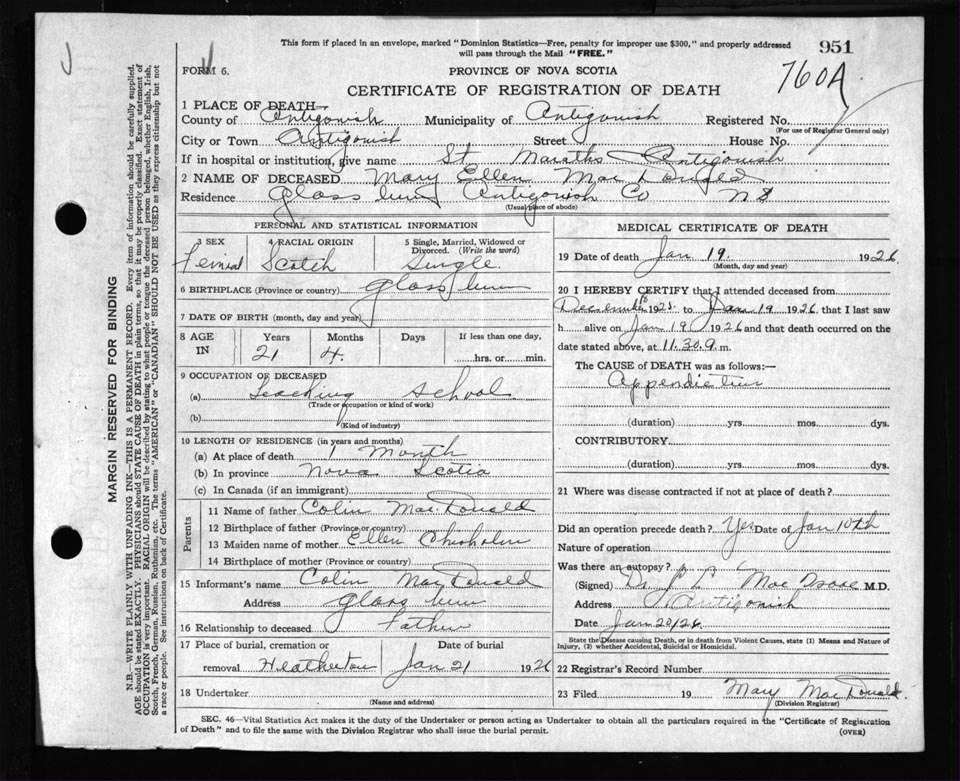 This form if placed in an envelope, marked "Dominion Statistics—Free, penalty for improper use $300," and properly addressed
will pass through the Mail "FREE."
951
FORM 6.
PROVINCE OF NOVA SCOTIA
760A
CERTIFICATE OF REGISTRATION OF DEATH
1 PLACE OF DEATH—
County of Antigonish Municipality of Antigonish Registered No.
(For use of Registrar General only)
City or Town Antigonish Street House No.
If in hospital or institution, give name St Marthas Antigonish
2 NAME OF DECEASED Mary Ellen Mac Donald
Residence Glass Antigonish Co N S
(Usual place of abode)
PERSONAL AND STATISTICAL INFORMATION
3 SEX
4 RACIAL ORIGIN
5 Single, Married, Widowed or
Divorced. (Write the word)
Scotch Single.
6 BIRTHPLACE (Province or country) Glass
7 DATE OF BIRTH (month, day and year)
8 AGE IN
Years Months Days If less than one day,
21 4. hrs. or min.
9 OCCUPATION OF DECEASED
(a) Teaching School
(Trade or occupation or kind of work)
(b)
(Kind of industry)
10 LENGTH OF RESIDENCE (in years and months)
(a) At place of death 1 Month
(b) In province Nova Scotia
(c) In Canada (if an immigrant)
Parents
11 Name of father Colin Mac Donald
12 Birthplace of father (Province or country)
13 Maiden name of mother Ellen Chisholm
14 Birthplace of mother (Province or country)
15 Informant's name Colin Mac Donald
Address Glass
16 Relationship to deceased Father
17 Place of burial, cremation or Date of burial
removal Heatherton Jan 21 1926
18 Undertaker
(Name and address)
MEDICAL CERTIFICATE OF DEATH
19 Date of death Jan 19. 1926
(Month, day and year)
20 I HEREBY CERTIFY that I attended deceased from
December 1925 to Jan 19 1926 that I last saw
h alive on Jan 19 1926 and that death occurred on
date stated above, at 11.30 m.
The CAUSE of DEATH was as follows:—
(duration) yrs. mos. dys.
CONTRIBUTORY
(duration) yrs. mos. dys.
21 Where was disease contracted if not at place of death?
Did an operation precede death? Yes Date of Jan 10th
Nature of operation
Was there an autopsy?
(Signed) Dr. Mac Isaac M.D.
Address Antigonish
Date Jan 20/26.
State the Disease causing Death, or in death from Violent Causes, state (1) Means and Nature of
Injury, (2) whether Accidental, Suicidal or Homicidal.
22 Registrar's Record Number
23 Filed 19 Mary MacDonald.
(Division Registrar)
SEC. 46—Vital Statistics Act makes it the duty of the Undertaker or person acting as Undertaker to obtain all the particulars required in the "Certificate of Registration
of Death" and to file the same with the Division Registrar who shall issue the burial permit.
(OVER)
MARGIN RESERVED FOR BINDING
N.B.—WRITE PLAINLY WITH UNFADING INK—THIS IS A PERMANENT RECORD. Every item of information should be carefully supplied.
AGE should be stated EXACTLY. PHYSICIANS should STATE CAUSE OF DEATH in plain terms, so that it may be properly classified. Exact statement of
OCCUPATION is very important. RACIAL ORIGIN will be described by stating to what people or tongue the deceased person belonged, whether English, Irish,
Scotch, French, German, Russian, Ruthenian, etc. The terms "AMERICAN" or "CANADIAN" SHOULD NOT BE USED as they express citizenship but not
a race or people. See instructions on back of Certificate.